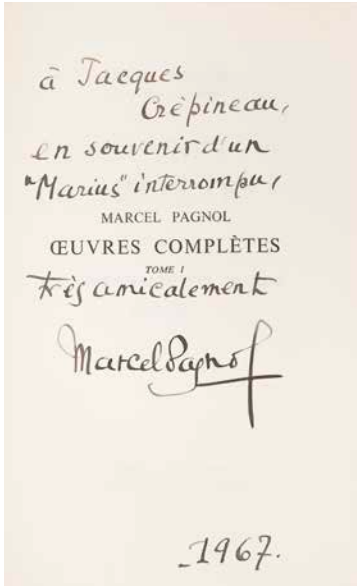 à Jacques
Crèpineau,
en souvenir d'un
"Marius" interrompu,
MARCEL PAGNOL
ŒUVRES COMPLÈTES
TOME I
très amicalement
Marcel Pagnol
_1967.